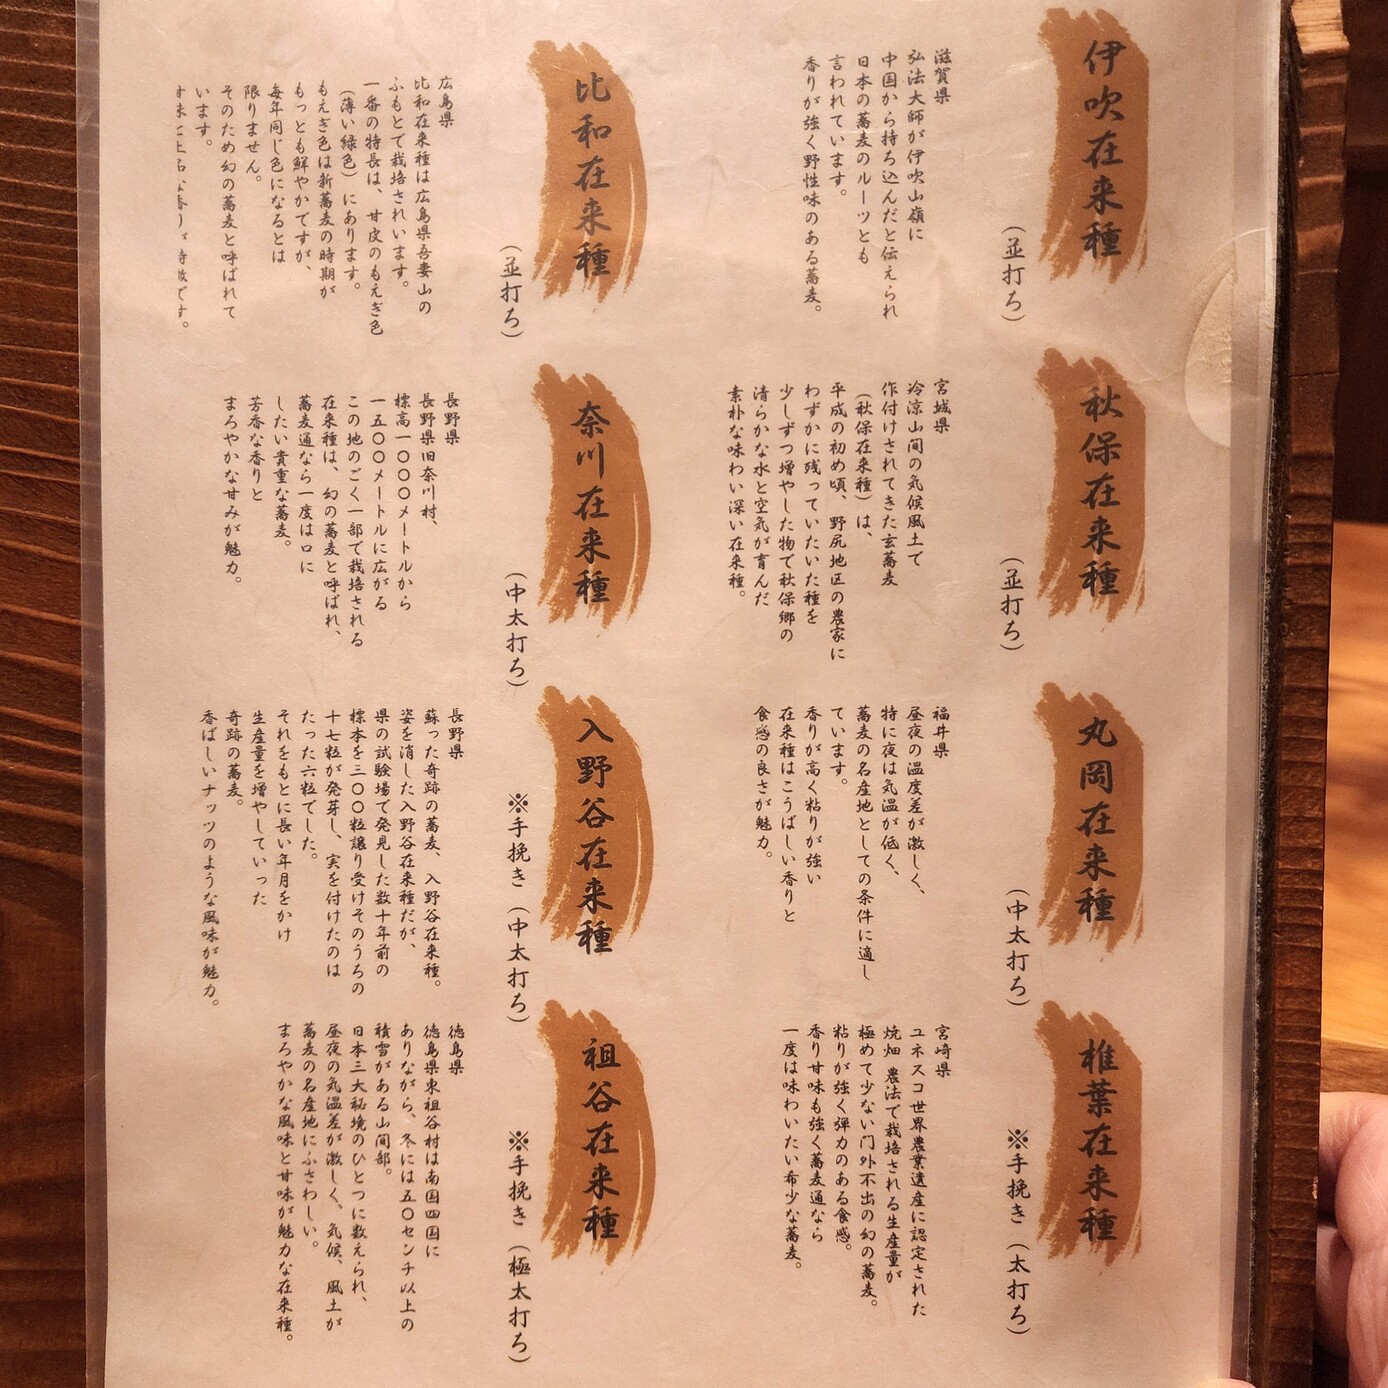 伊吹在来種
(並打ち)
滋賀県
弘法大師が伊吹山嶺に
中国から持ち込んだと伝えられ
日本の蕎麦のルーツとも
言われています。
香りが強く野性味のある蕎麦。
秋保在来種
(並打ち)
宮城県
冷涼山間の気候風土で
作付けされてきた玄蕎麦
(秋保在来種)は、
平成の初め頃、野尻地区の農家に
わずかに残っていたいた種を
少しずつ増やした物で秋保郷の
清らかな水と空気が育んだ
素朴な味わい深い在来種。
丸岡在来種
(中太打ち)
福井県
昼夜の温度差が激しく、
特に夜は気温が低く、
蕎麦の名産地としての条件に適し
ています。
香りが高く粘りが強い
在来種はこうばしい香りと
食感の良さが魅力。
椎葉在来種
※手挽き(太打ち)
宮崎県
ユネスコ世界農業遺産に認定された
焼畑 農法で栽培される生産量が
極めて少ない門外不出の幻の蕎麦。
粘りが強く弾力のある食感。
香り甘味も強く蕎麦通なら
一度は味わいたい希少な蕎麦。
比和在来種
(並打ち)
広島県
比和在来種は広島県吾妻山の
ふもとで栽培されいます。
一番の特長は、甘皮のもえぎ色
(薄い緑色)にあります。
もえぎ色は新蕎麦の時期が
もっとも鮮やかですが、
毎年同じ色になるとは
限りません。
そのため幻の蕎麦と呼ばれて
います。
甘味と上品な香りが特徴です。
奈川在来種
(中太打ち)
長野県
長野県旧奈川村、
標高一〇〇〇メートルから
一五〇〇メートルに広がる
この地のごく一部で栽培される
在来種は、幻の蕎麦と呼ばれ、
蕎麦通なら一度は口に
したい貴重な蕎麦。
芳香な香りと
まろやかな甘みが魅力。
入野谷在来種
※手挽き(中太打ち)
長野県
蘇った奇跡の蕎麦、入野谷在来種。
姿を消した入野谷在来種だが、
県の試験場で発見した数十年前の
標本を三〇〇粒譲り受けそのうちの
十七粒が発芽し、実を付けたのは
たった六粒でした。
それをもとに長い年月をかけ
生産量を増やしていった
奇跡の蕎麦。
香ばしいナッツのような風味が魅力。
祖谷在来種
※手挽き(極太打ち)
徳島県
徳島県東祖谷村は南国四国に
ありながら、冬には五〇センチ以上の
積雪がある山間部。
日本三大秘境のひとつに数えられ、
昼夜の気温差が激しく、気候、風土が
蕎麦の名産地にふさわしい。
まろやかな風味と甘味が魅力な在来種。